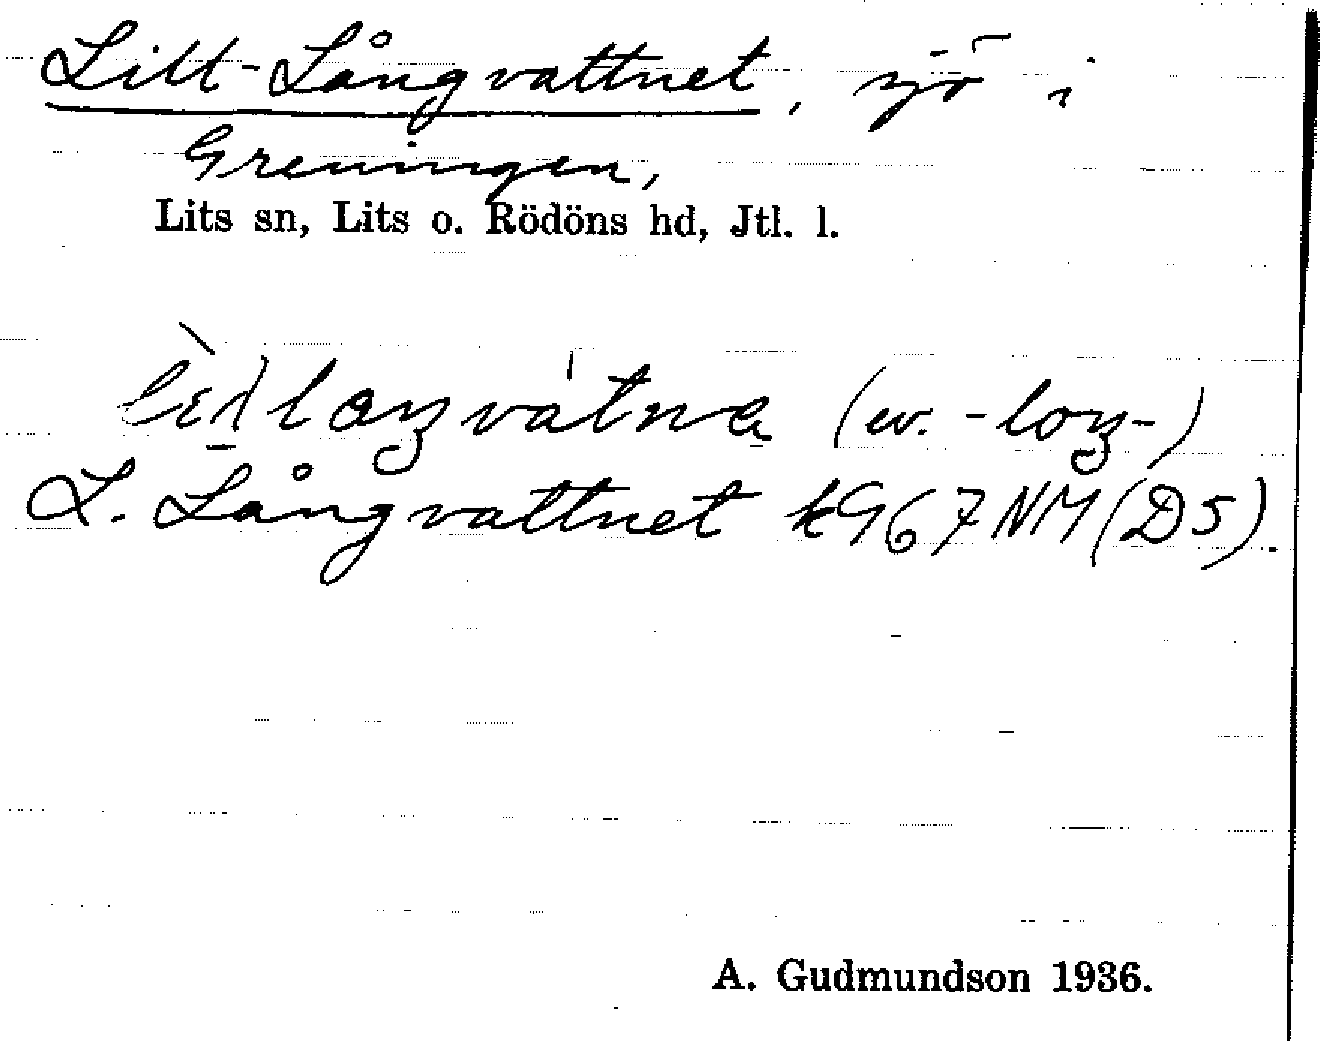 Lill-Långvattnet, sjö i
Greningen,
Lits sn, Lits o. Rödöns hd, Jtl. l.
(ev. -loŋ-)
L. Långvattnet k967NM(D5).
A. Gudmundson 1936.